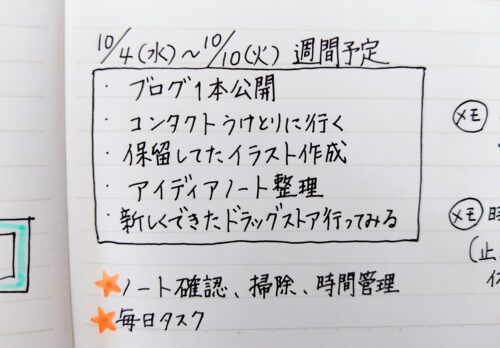 10/4(水)～10/10(火) 週間予定
・ブログ1本公開
・コンタクトうけとりに行く
・保留してたイラスト作成
・アイディアノート整理
・新しくできたドラッグストア行ってみる
メモ
メモ 時
(止
★ノート確認、掃除、時間管理
★毎日タスク